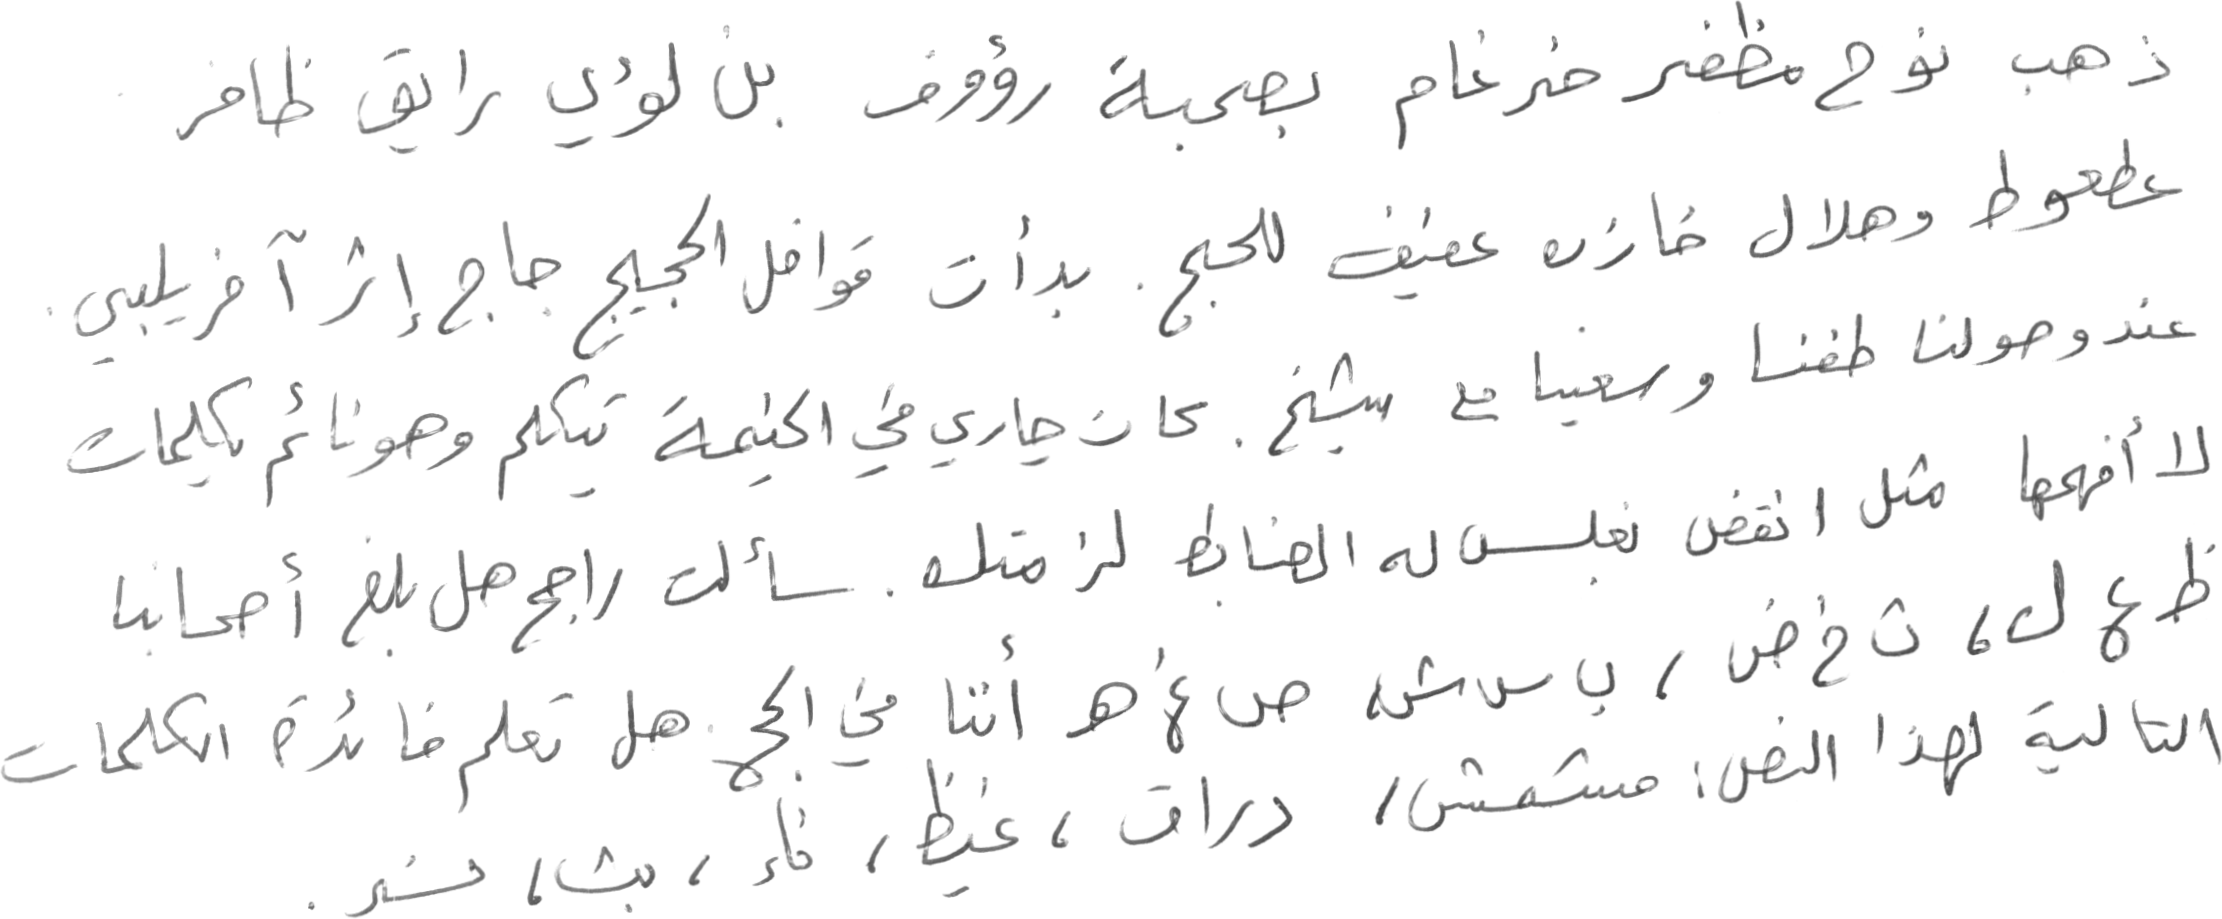 ذهب نوح مظفر ضرغام بصحبة رؤوف بن لؤي رايق ظافر
عطعوط وهلال خازن عفيف للحج. بدأت قوافل الحجيج حاج إثر آخر يلبي.
عند وصولنا طفنا وسعينا مع شيخ. كان جاري في الخيمة يتكلم وهو نائم بكلمات
لا أفهمها مثل انقض نغلس له الضابط لز متك. سألت راجح هل بلغ أصحابنا
ظ ع ل، ث خ ض، ب س ش، ص غ هـ أننا في الحج. هل تعلم فائدة الكلمات
التالية لهذا النص: مشمش، دراق، غيظ، فأر، بث، نسر.